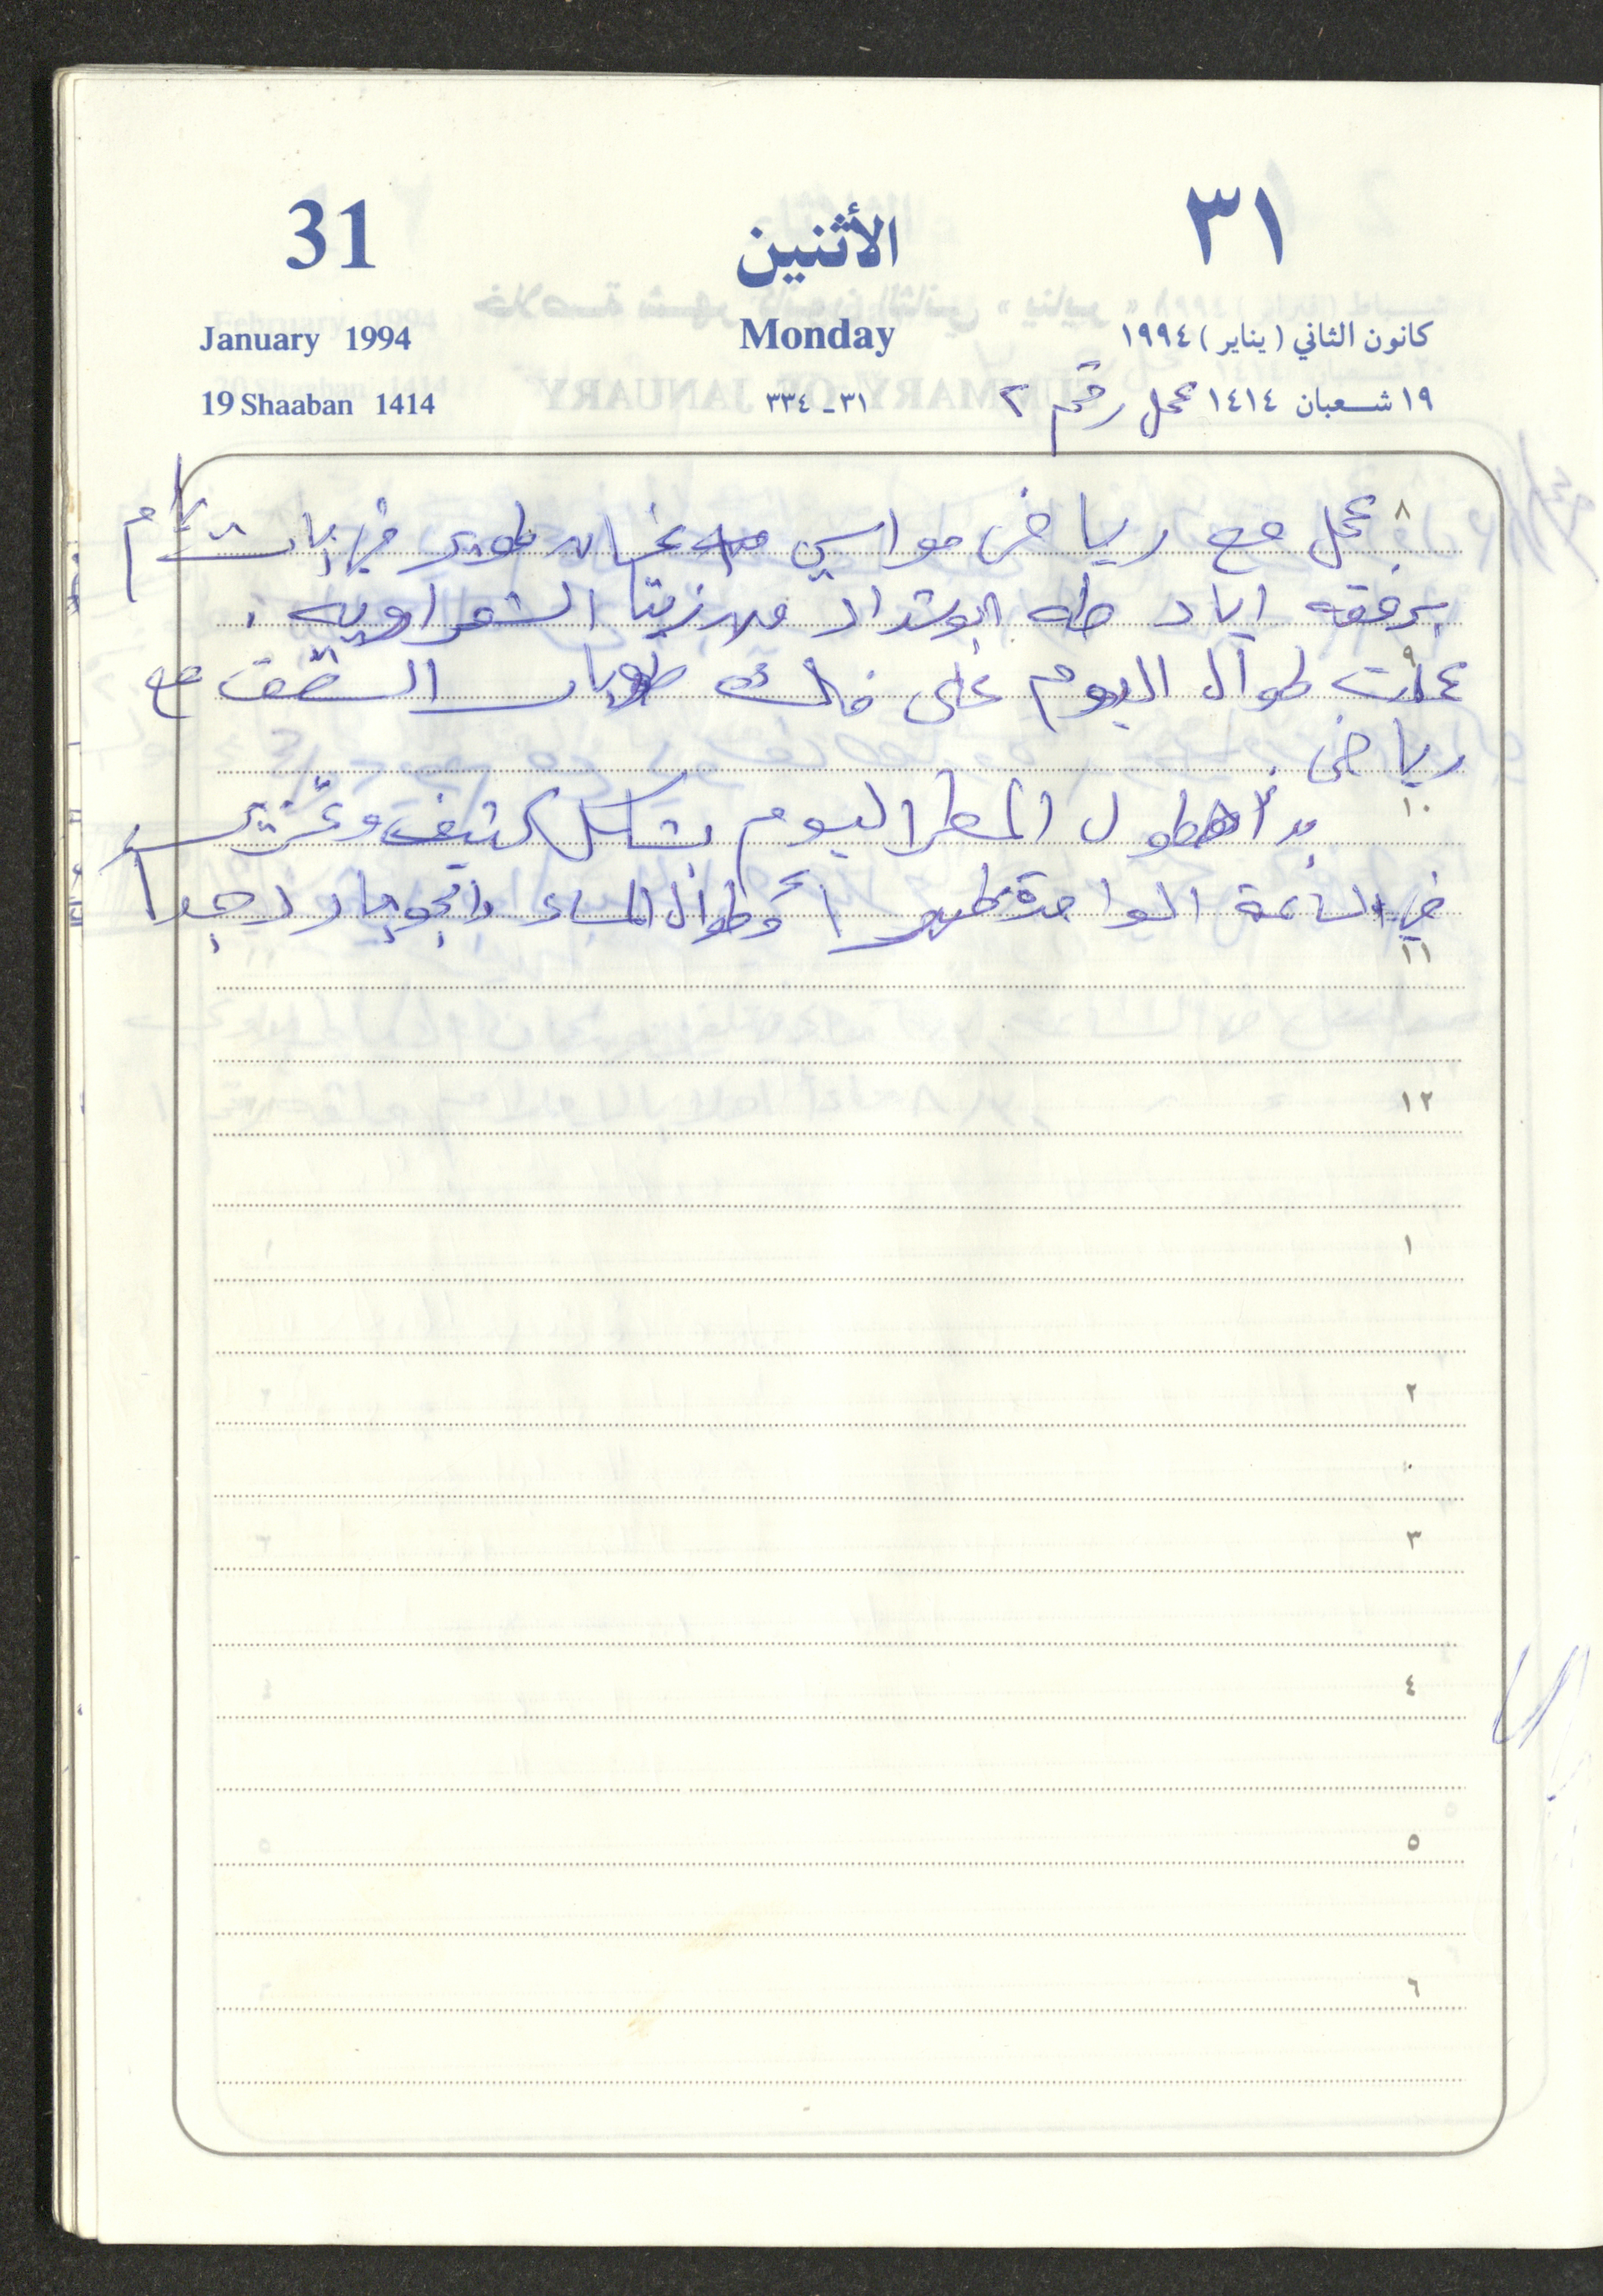 31 الأثنين ٣١
January 1994 Monday كانون الثاني (يناير) ١٩٩٤
19 Shaaban 1414 ٣١-٣٣٤ ١٩ شعبان ١٤١٤ عمل رقم ٢
٨ عمل مع رياض مواسي في بات يام
برفقه اياد طه ابو شداد من زيتا الشعراويه .
٩
عملت طوال اليوم على فك طوبار السقف مع
رياض .
١٠
بدأ هطول المطر اليوم بشكل كثيف وغزير
في الساعة الواحدة ظهراً وطوال المساء والجو بارد جداً
١١
١٢
١
٢
٣
٤
٥
٦